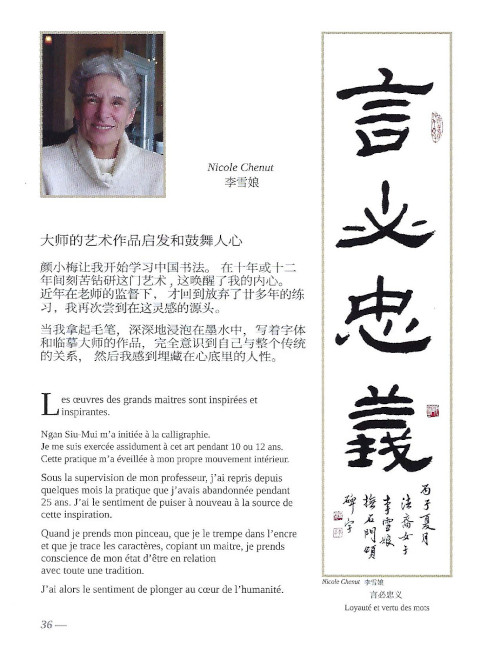 Nicole Chenut
李雪娘
大师的艺术作品启发和鼓舞人心
颜小梅让我开始学习中国书法。 在十年或十二
年间刻苦钻研这门艺术 , 这唤醒了我的内心。
近年在老师的监督下， 才回到放弃了廿多年的练
习，我再次尝到在这灵感的源头。
当我拿起毛笔，深深地浸泡在墨水中，写着字体
和临摹大师的作品，完全意识到自己与整个传统
的关系， 然后我感到埋藏在心底里的人性。
Les œuvres des grands maitres sont inspirées et
inspirantes.
Ngan Siu-Mui m’a initiée à la calligraphie.
Je me suis exercée assidument à cet art pendant 10 ou 12 ans.
Cette pratique m’a éveillée à mon propre mouvement intérieur.
Sous la supervision de mon professeur, j’ai repris depuis
quelques mois la pratique que j’avais abandonnée pendant
25 ans. J’ai le sentiment de puiser à nouveau à la source de
cette inspiration.
Quand je prends mon pinceau, que je le trempe dans l’encre
et que je trace les caractères, copiant un maitre, je prends
conscience de mon état d’être en relation
avec toute une tradition.
J’ai alors le sentiment de plonger au cœur de l’humanité.
36 —
言必忠義
丙子夏月
法裔女士
李雪娘
撫石門頌
碑字
Nicole Chenut 李雪娘
言必忠义
Loyauté et vertu des mots